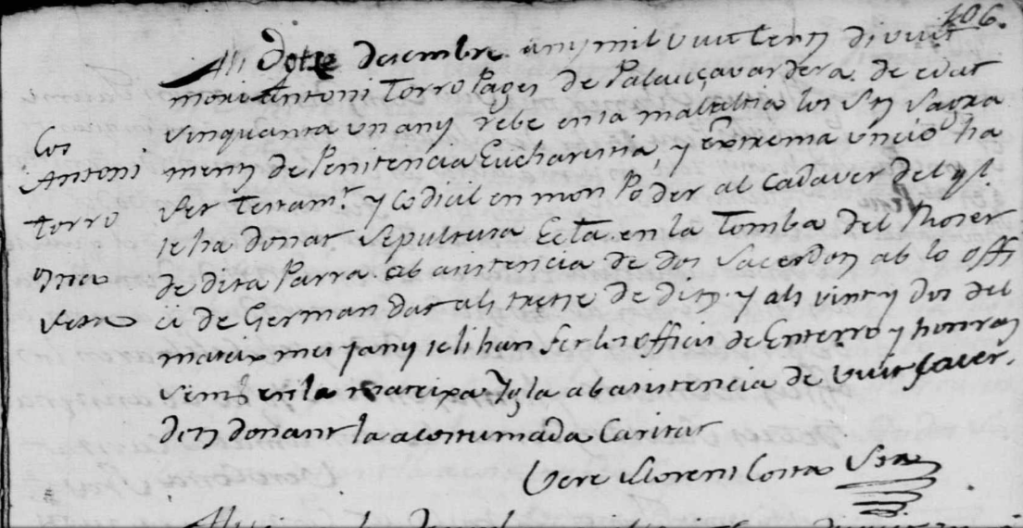 106.
Als dotse desembre any mil vuit cents divuit
morí Antoni Torro Pages de Palausavardera de edat
sinquanta un any rebe en sa malaltia los Sts Sagra
ments de Penitencia Eucharistia, y extrema uncio ha
Cos
fet Testamt. y Codicil en mon Poder al Cadaver del ql.
Antoni
se ha donat sepultura Ecta. en la Tomba del Roser
Torro
de dita Parra. ab asistencia de dos Sacerdots ab lo offi
ci de Germandat als tretse de dits y als vint y dos del
mateix mes y any se li han fet los officis de Enterro y honras
en la mateixa Igla ab asistencia de vuit sacer
dots donant la acostumada Caritat
Pere Llorens Costa